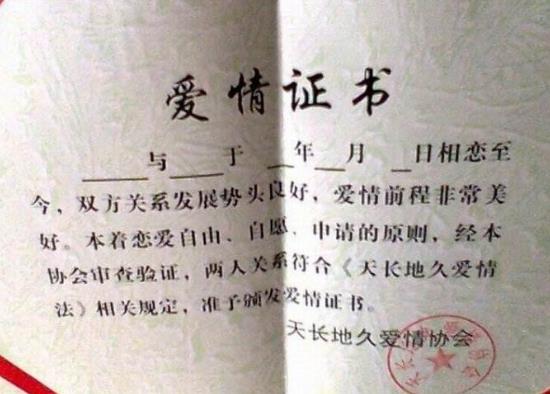 爱情证书
____与____于__年__月__日相恋至
今，双方关系发展势头良好，爱情前程非常美
好。本着恋爱自由、自愿、申请的原则，经本
协会审查验证，两人关系符合《天长地久爱情
法》相关规定，准予颁发爱情证书。
天长地久爱情协会